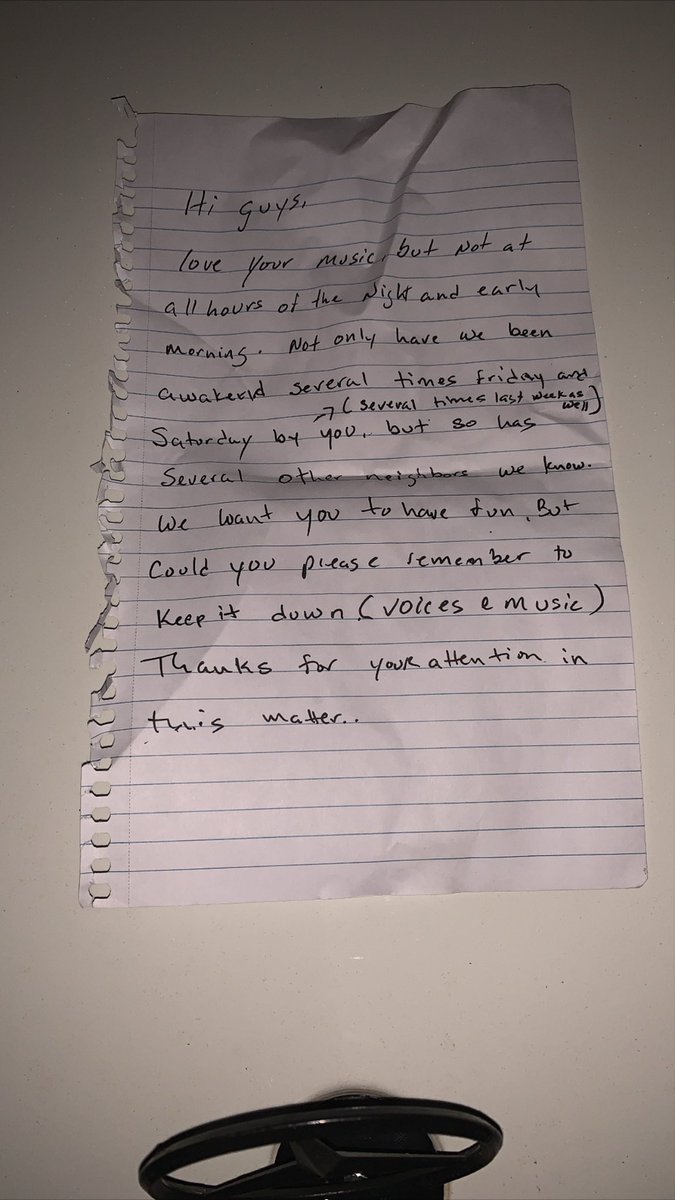 Hi guys,
love your music, but Not at
all hours of the Night and early
morning. Not only have we been
awakend several times friday and
(several times last week as well)
Saturday by you, but so has
Several other neighbors we know.
We want you to have fun, But
Could you please remember to
Keep it down (voices & music)
Thanks for your attention in
this matter..